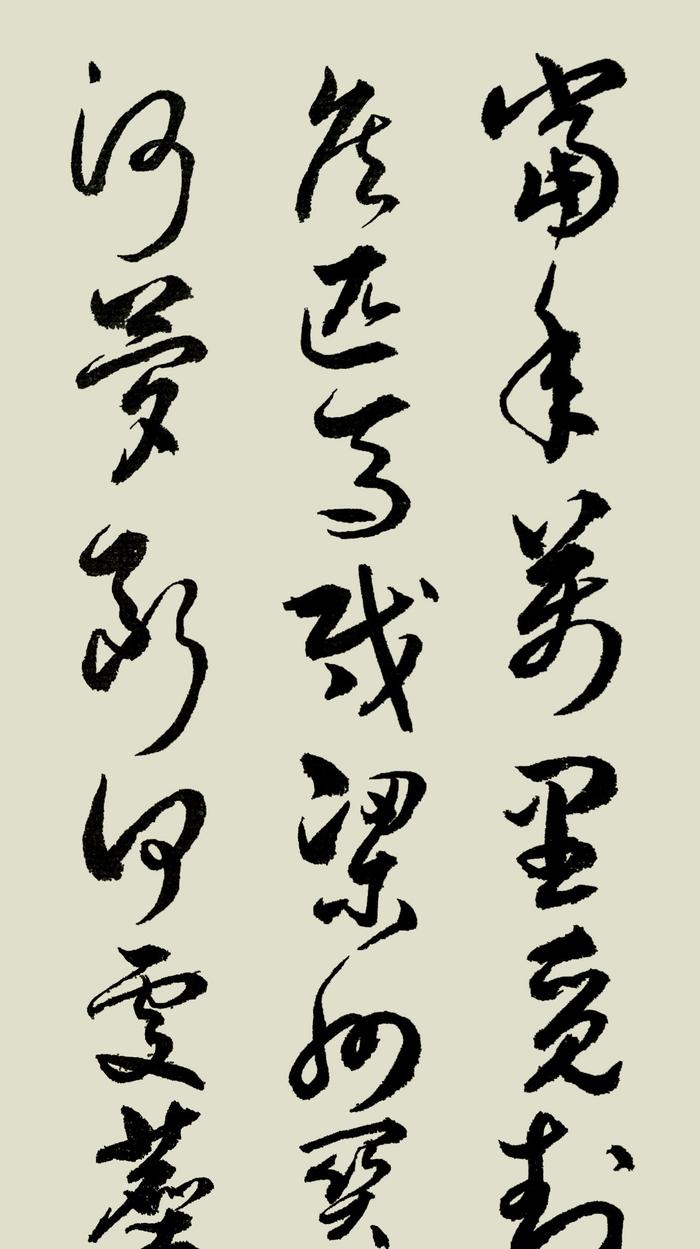 當年萬里覓封
侯匹馬戍梁州關
河夢斷何處塵